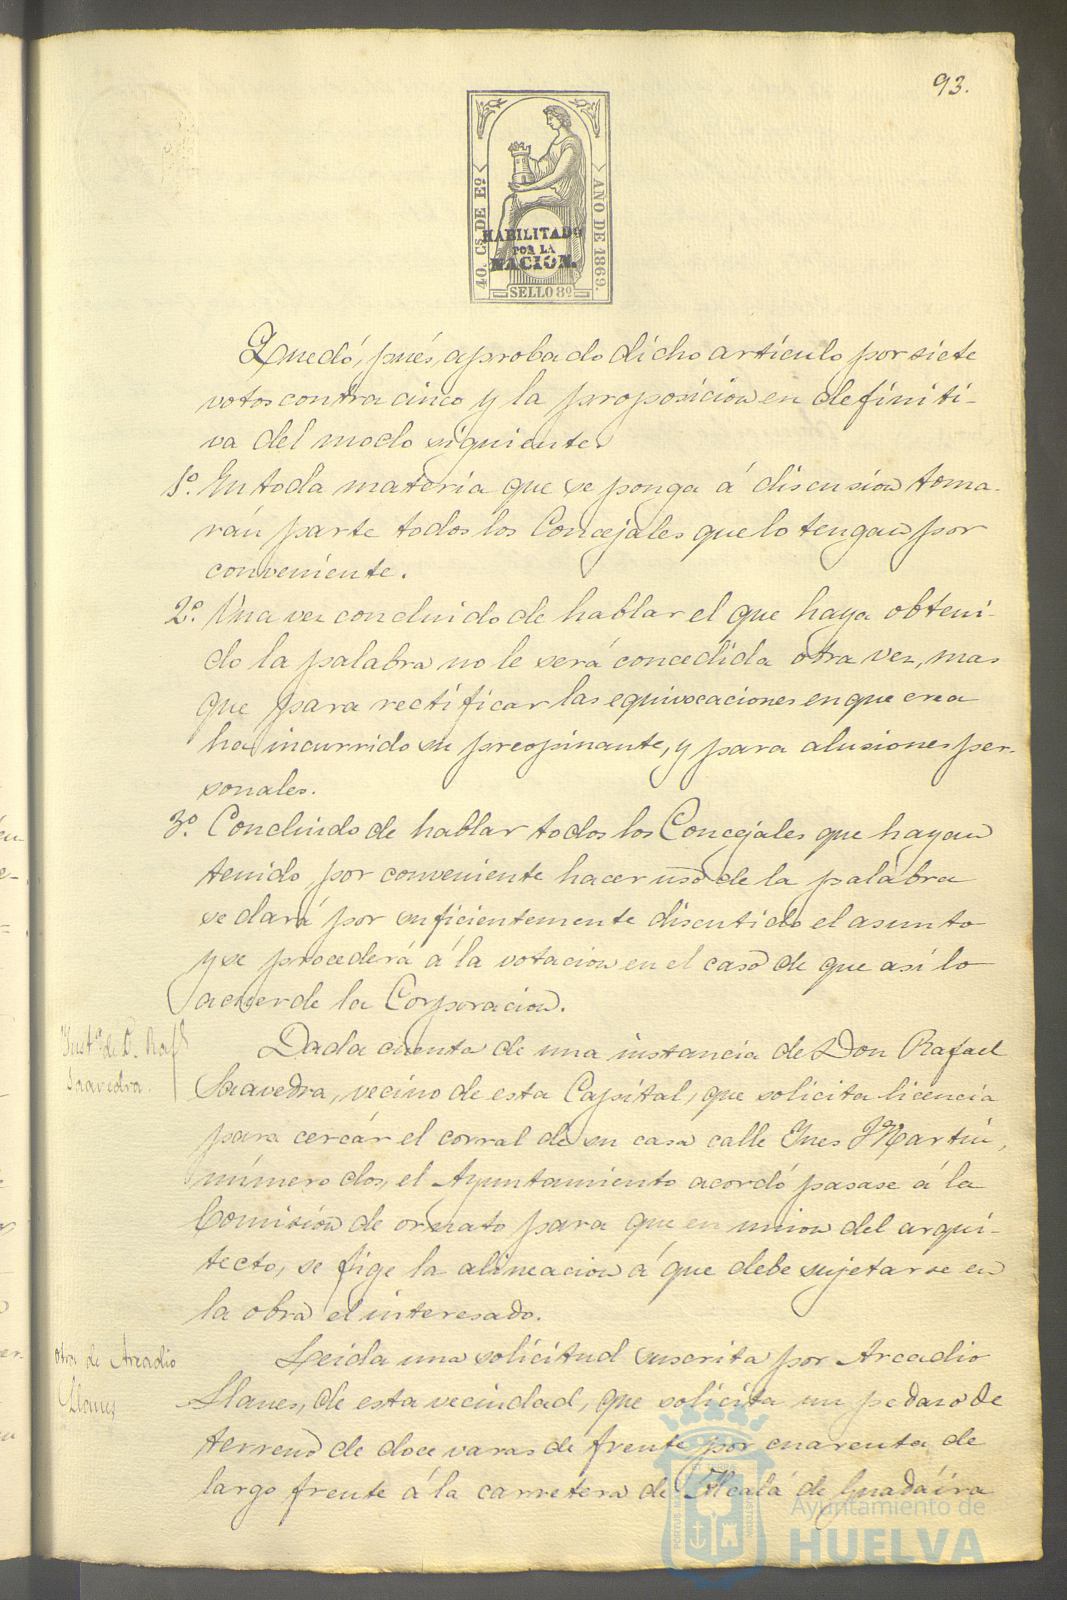 93.
40. Cs DE Eº
AÑO DE 1869.
HABILITADO
POR LA
NACION.
SELLO 8º
Quedó, pués, aprobado dicho artículo por siete
votos contra cinco y la proposicion en definiti-
va del modo siguiente.
1º. En toda materia que se ponga á discusion toma-
rán parte todos los Concejales que lo tengan por
conveniente.
2º. Una vez concluido de hablar el que haya obteni-
do la palabra no le será concedida otra vez, mas
que para rectificar las equivocaciones en que crea
ha incurrido su preopinante, y para alusiones per-
sonales.
3º. Concluido de hablar todos los Concejales que hayan
tenido por conveniente hacer uso de la palabra
se dará por suficientemente discutido el asunto
y se procederá á la votacion en el caso de que asi lo
acuerde la Corporacion.
Instª de D. Rafl
Saavedra.
Dada cuenta de una instancia de Don Rafael
Saavedra, vecino de esta Capital, que solicita licencia
para cercár el corral de su casa calle Ines Martin,
número dos, el Ayuntamiento acordó pasase á la
Comision de ornato para que en union del arqui-
tecto, se fige la alineacion á que debe sujetarse en
la obra el interesado.
otra de Arcadio
Llanes
Leida una solicitud suscrita por Arcadio
Llanes, de esta vecindad, que solicita un pedazo de
terreno de doce varas de frente por cuarenta de
largo frente á la carretera de Alcalá de Guadáira
Ayuntamiento de
HUELVA